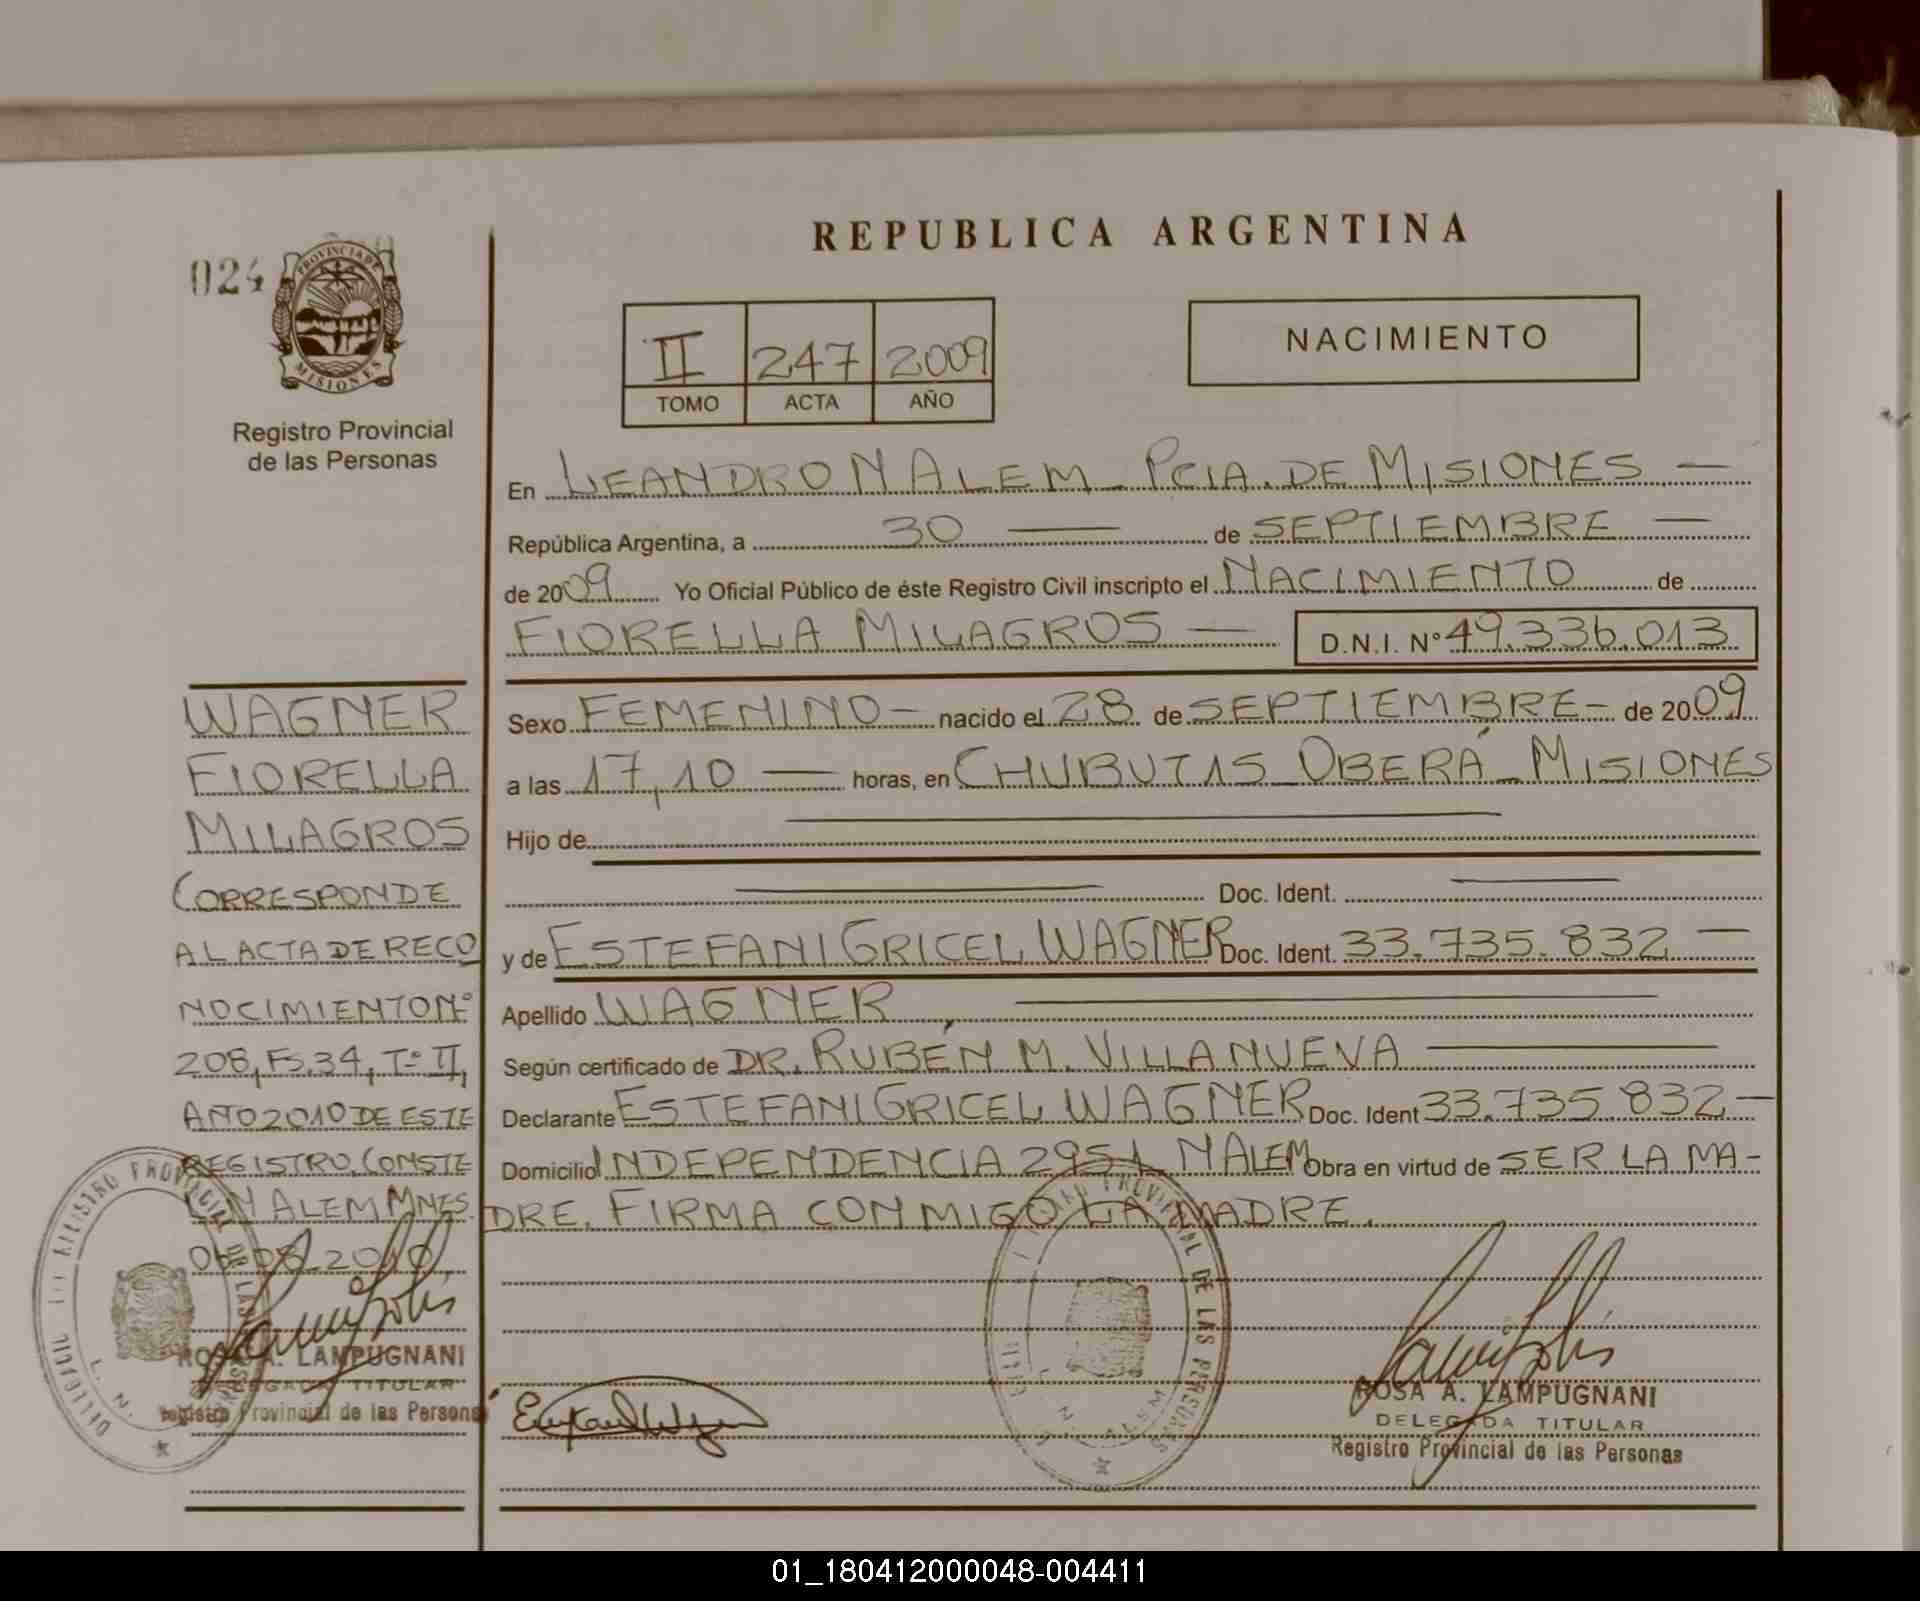 REPUBLICA ARGENTINA
024
PROVINCIA DE
MISIONES
Registro Provincial
de las Personas
II 247 2009
TOMO ACTA AÑO
NACIMIENTO
En LEANDRO N ALEM - PCIA. DE MISIONES -
República Argentina, a 30 — de SEPTIEMBRE —
de 2009 Yo Oficial Público de éste Registro Civil inscripto el NACIMIENTO de
FIORELLA MILAGROS — D.N.I. N° 49.336.013
Sexo FEMENINO - nacido el 28 de SEPTIEMBRE - de 2009
a las 17,10 — horas, en CHUBUT 15 - OBERÁ - MISIONES
Hijo de
Doc. Ident.
y de ESTEFANI GRICEL WAGNER Doc. Ident. 33.735.832 —
Apellido WAGNER
Según certificado de DR. RUBÉN M. VILLANUEVA
Declarante ESTEFANI GRICEL WAGNER Doc. Ident 33.735.832 —
Domicilio INDEPENDENCIA 295 L N ALEM Obra en virtud de SER LA MA-
DRE. FIRMA CONMIGO LA MADRE.
WAGNER
FIORELLA
MILAGROS
CORRESPONDE
AL ACTA DE RECO
NOCIMIENTO N°
208, Fs. 34, T° II,
AÑO 2010 DE ESTE
REGISTRO. CONSTE
L N ALEM MNES
06-08-2010
ROSA A. LAMPUGNANI
DELEGADA TITULAR
Registro Provincial de las Personas
ROSA A. LAMPUGNANI
DELEGADA TITULAR
Registro Provincial de las Personas
DE LAS PERSONAS
L. N. ALEM
01_180412000048-004411